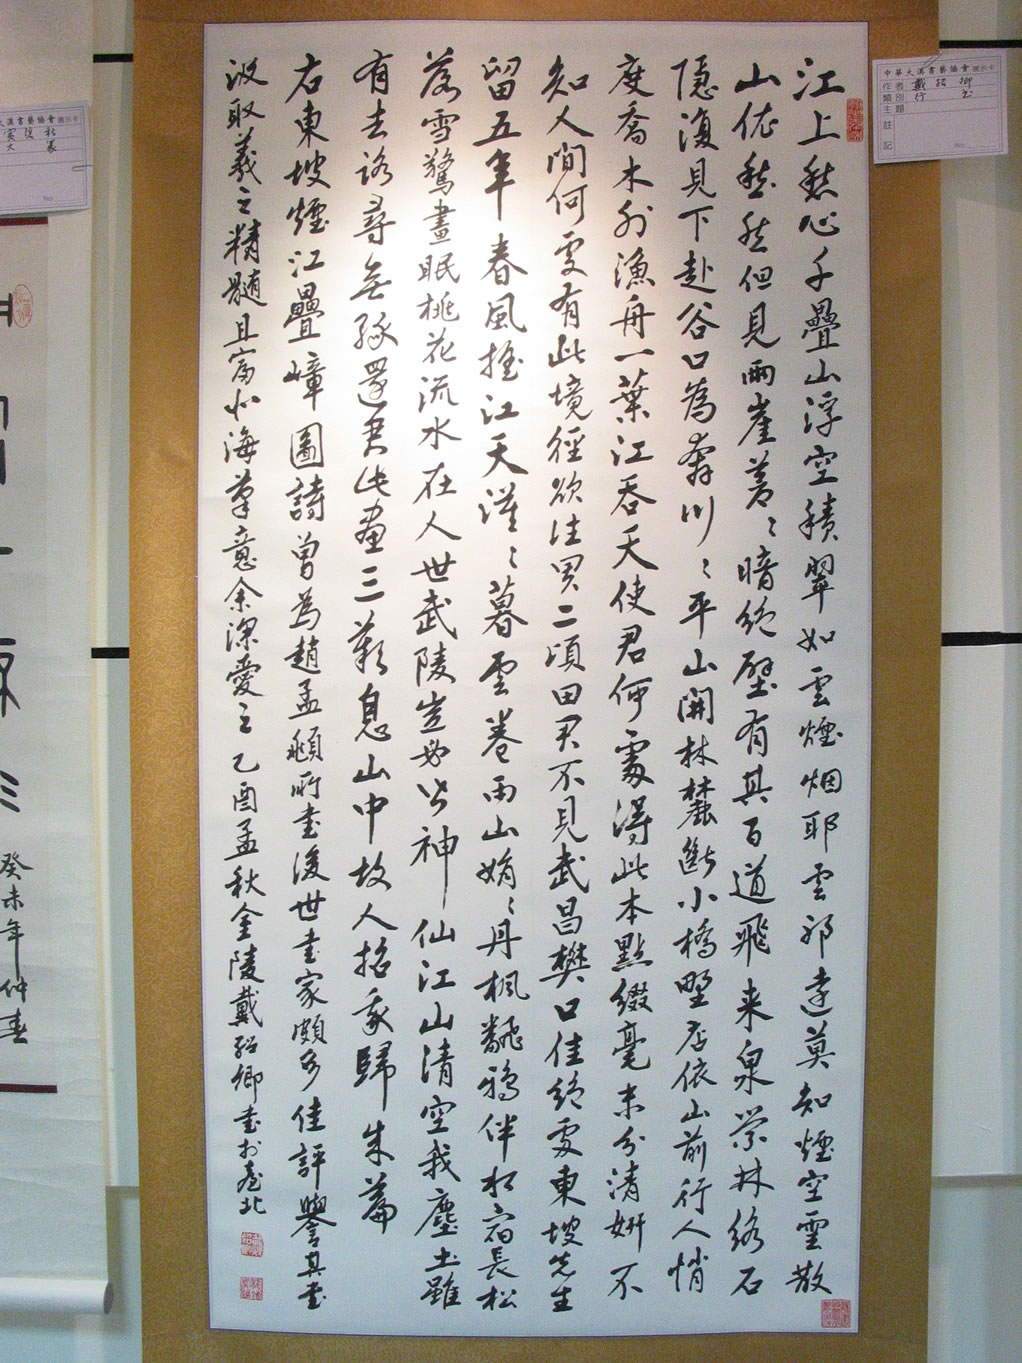 江上愁心千疊山浮空積翠如雲煙烟耶雲邪遠莫知煙空雲散
山依然但見兩崖蒼〻暗絕壁有其百道飛来泉縈林絡石
隱復見下赴谷口為奔川〻平山開林麓斷小橋野店依山前行人悄
度喬木外漁舟一葉江吞天使君何處得此本點綴毫末分清妍不
知人間何處有此境徑欲往買二頃田君不見武昌樊口佳絕處東坡先生
留五年春風搖江天漠〻暮雲卷雨山娟〻丹楓翻鴉伴水宿長松
落雪驚晝眠桃花流水在人世武陵豈必皆神仙江山清空我塵土雖
有去路尋無緣還君此畫三歎息山中故人招我歸来篇
右東坡煙江疊嶂圖詩曾為趙孟頫所書後世書家頗多佳評譽其書
汲取羲之精髓且富北海筆意余深愛之乙酉孟秋金陵戴紹卿書於臺北
中華大漢書藝協會
作者 戴紹卿
類別 行書
主題
註記
No.
癸未年仲春